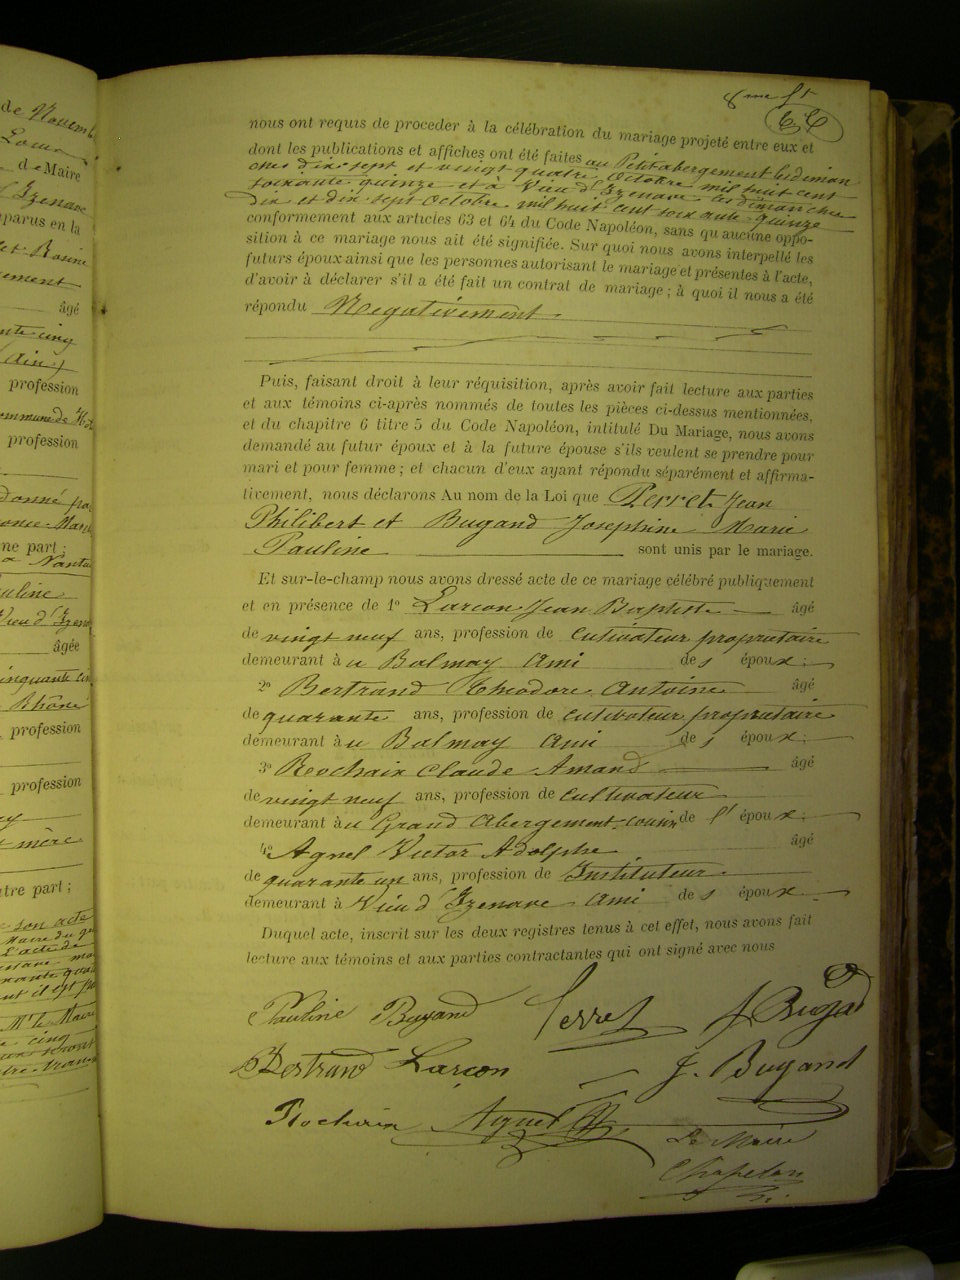 de Novemb
Lour
de Maire
d'Izenave
mparus en la
et Rosine
ement
âgé
ante cinq
(Ain)
profession
commune de
profession
donné
Marie
ne part ;
Nantua
uline
Vieu d'Izena
âgée
inquante cin
Rhône
profession
profession
mère
utre part ;
son acte
Maire du
L'acte de
Mr le Maire
cinq
8me ft
66
nous ont requis de proceder à la célébration du mariage projeté entre eux et
dont les publications et affiches ont été faites au Petit abergement les diman
ches dix-sept et vingt quatre Octobre mil huit cent
soixante quinze et à Vieu d'Izenave les dimanches
dix et dix-sept Octobre mil huit cent soixante-quinze
conformement aux articles 63 et 64 du Code Napoléon, sans qu'aucune oppo-
sition à ce mariage nous ait été signifiée. Sur quoi nous avons interpellé les
futurs époux ainsi que les personnes autorisant le mariage et présentes à l'acte,
d'avoir à déclarer s'il a été fait un contrat de mariage ; à quoi il nous a été
répondu Negativement
Puis, faisant droit à leur réquisition, après avoir fait lecture aux parties
et aux témoins ci-après nommés de toutes les pièces ci-dessus mentionnées,
et du chapitre 6 titre 5 du Code Napoléon, intitulé Du Mariage, nous avons
demandé au futur époux et à la future épouse s'ils veulent se prendre pour
mari et pour femme ; et chacun d'eux ayant répondu séparément et affirma-
tivement, nous déclarons Au nom de la Loi que Perret Jean
Philibert et Bugand Josephine Marie
Pauline sont unis par le mariage.
Et sur-le-champ nous avons dressé acte de ce mariage célébré publiquement
et en présence de 1º Larçon Jean Baptiste âgé
de vingt neuf ans, profession de cultivateur proprietaire
demeurant à u Balmay Ami de s époux.
2º Bertrand Théodore Antoine âgé
de quarante ans, profession de cultivateur proprietaire
demeurant à u Balmay Ami de s époux.
3º Rochaix Claude Amand âgé
de vingt neuf ans, profession de cultivateur
demeurant à u Grand Abergement. cousin de l' époux.
4º Agnel Victor Adolphe âgé
de quarante un ans, profession de Instituteur
demeurant à Vieu d'Izenave Ami de s époux.
Duquel acte, inscrit sur les deux registres tenus à cet effet, nous avons fait
lecture aux témoins et aux parties contractantes qui ont signé avec nous
Pauline Bugand Perret J. Bugand
Bertrand Larçon J. Bugand
Rochaix Agnel
Le Maire
Chapelan